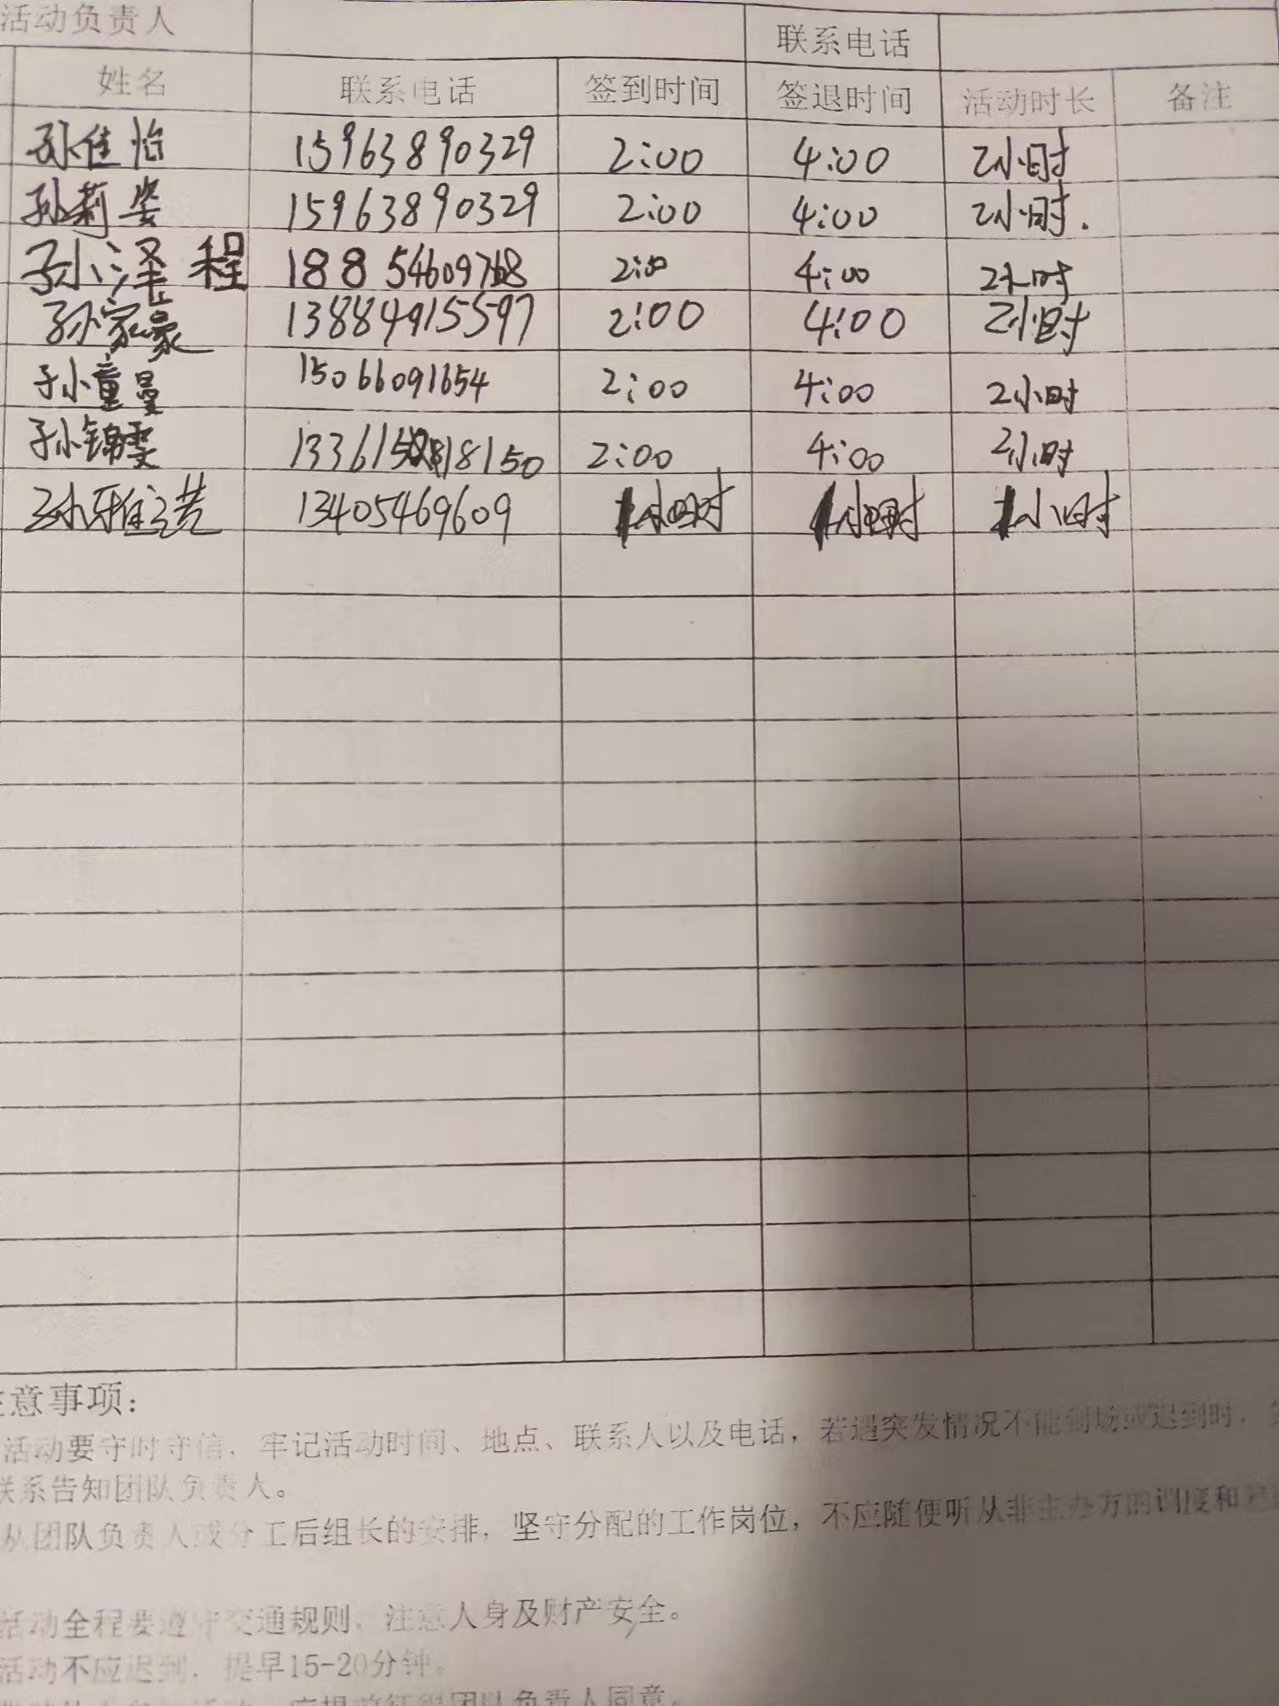 活动负责人 联系电话
姓名 联系电话 签到时间 签退时间 活动时长 备注
孙佳怡 15963890329 2:00 4:00 2小时
孙莉姿 15963890329 2:00 4:00 2小时.
孙泽程 18854609768 2:00 4:00 2小时
孙家豪 13884915597 2:00 4:00 2小时
孙童曼 15066091654 2:00 4:00 2小时
孙锦雯 2:00 4:00 2小时
孙雅芸 13405469609 1小时 1小时 1小时
注意事项:
活动要守时守信,牢记活动时间、地点、联系人以及电话,若遇突发情况不能到场或迟到时,
联系告知团队负责人。
从团队负责人或分工后组长的安排,坚守分配的工作岗位,不应随便听从非主办方的调度和
活动全程要遵守交通规则,注意人身及财产安全。
活动不应迟到,提早15-20分钟。
应提前征得团队负责人同意。